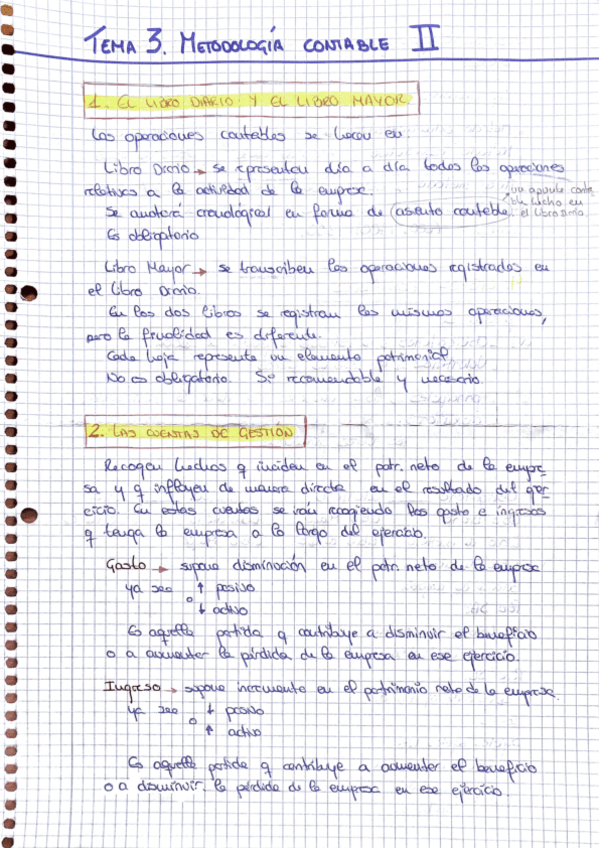 TEMA 3. METODOLOGÍA CONTABLE II
1. EL LIBRO DIARIO Y EL LIBRO MAYOR
Las operaciones contables se hacen en:
Libro Diario → se representan día a día todas las operaciones
relativas a la actividad de la empresa.
Se anotará cronológica/ en forma de asiento contable.
un apunte conta
ble hecho en
el libro diario.
Es obligatorio
Libro Mayor → se transcriben las operaciones registradas en
el Libro Diario.
En los dos libros se registran las mismas operaciones,
pero la finalidad es diferente.
Cada hoja representa un elemento patrimonial
No es obligatorio. Sí recomendable y necesario.
2. LAS CUENTAS DE GESTIÓN
Recogen hechos q inciden en el patr. neto de la empre-
sa y q influyen de manera directa en el resultado del ejer-
cicio. En estas cuentas se irán recogiendo los gasto e ingresos
q tenga la empresa a lo largo del ejercicio.
Gasto → supone disminución en el patr. neto de la empresa
ya sea ↑ pasivo
o
↓ activo
Es aquella partida q contribuye a disminuir el beneficio
o a aumentar la pérdida de la empresa en ese ejercicio.
Ingreso → supone incremento en el patrimonio neto de la empresa.
ya sea ↓ pasivo
o
↑ activo
Es aquella partida q contribuye a aumentar el beneficio
o a disminuir la pérdida de la empresa en ese ejercicio.